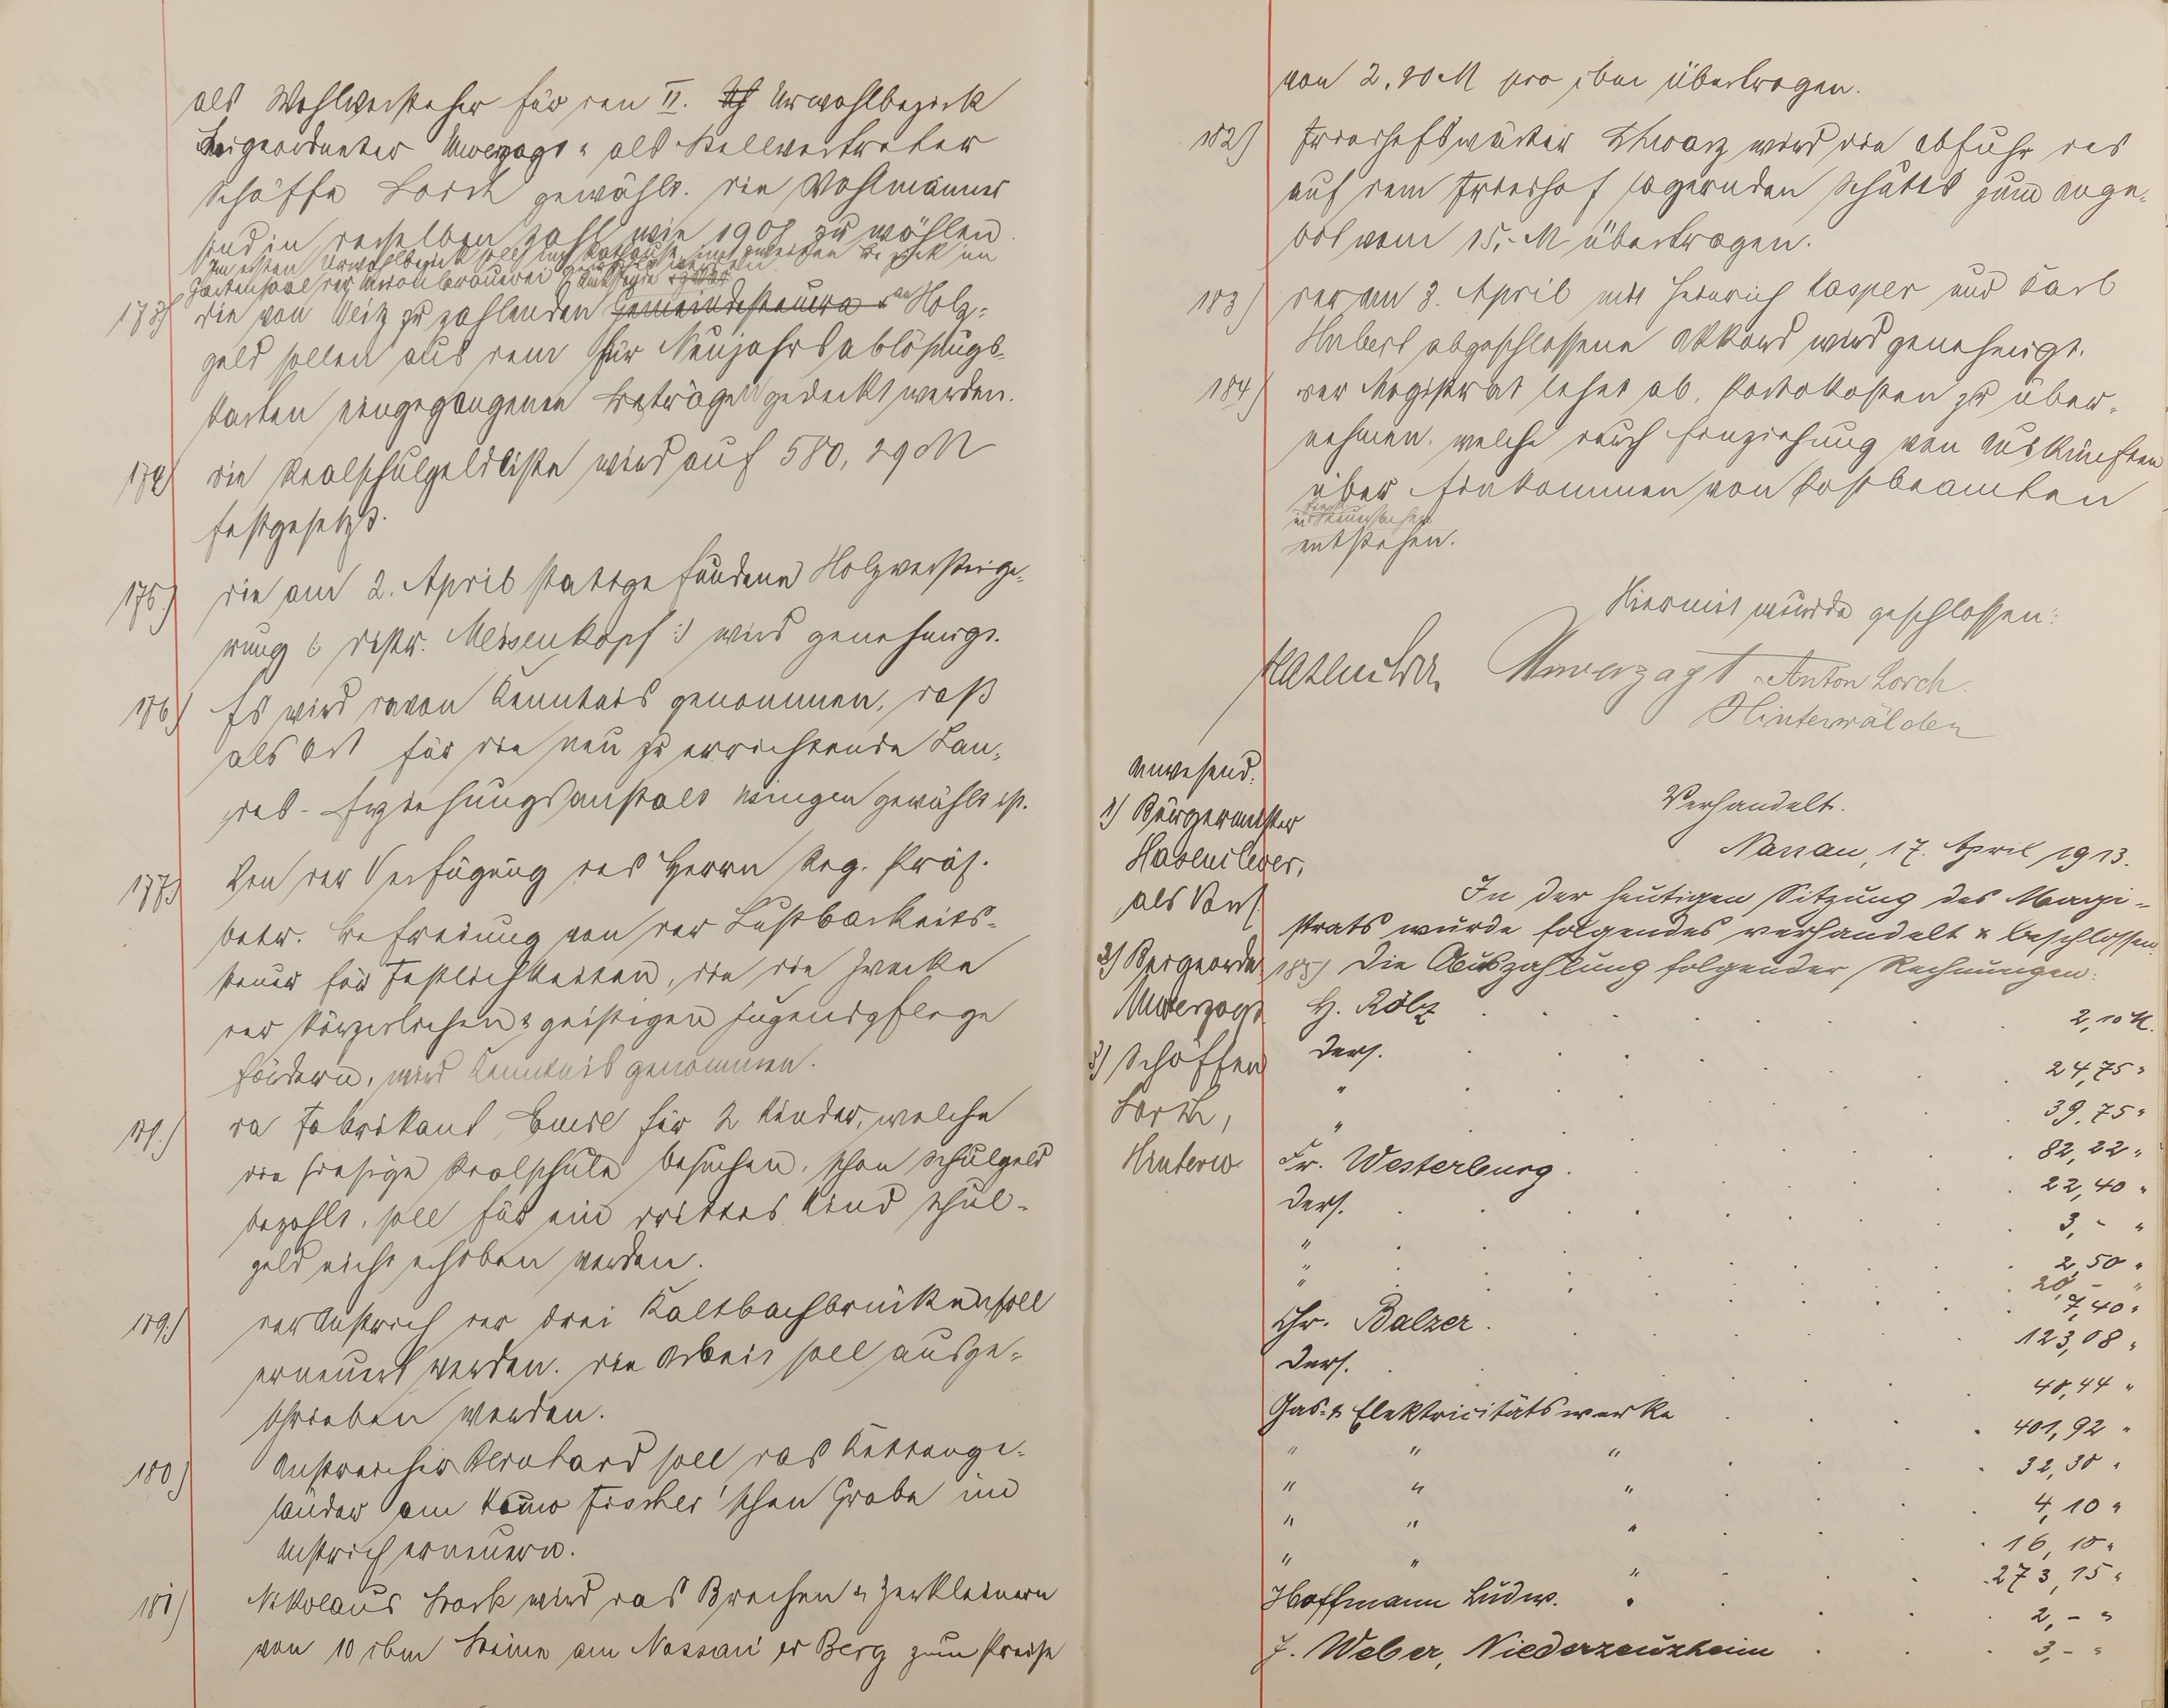 als Wahlvorsteher für den II. Urwahlbezirk
Beigeordneter Unverzagt u. als Stellvertreter
Schöffe Lorch gewählt. Die Wahlmänner
sind in derselben Zahl wie 1908 zu wählen.
Im ersten Urwahlbezirk soll im Rathause, im zweiten Bezirk im
Gartensaal der Kronenbrauerei gewählt werden
173) Die von Veitz zu zahlenden Gemeindesteuern u. Holz-
geld sollen aus dem für Neujahrsablösungs-
karten eingegangenen Beträgen gedeckt werden.
174) Die Realschulgeldliste wird auf 580,29 M
festgesetzt.
175) Die am 2. April stattgefundene Holzversteige-
rung (: Distr. Meisenkopf :) wird genehmigt.
176) Es wird davon Kenntnis genommen, daß
als Ort für die neu zu errichtende Lan-
des-Erziehungsanstalt Usingen gewählt ist.
177) Von der Verfügung des Herrn Reg. Präs.
betr. Befreiung von der Lustbarkeits-
steuer für Festlichkeiten, die die Zwecke
der körperlichen & geistigen Jugendpflege
fördern, wird Kenntnis genommen.
178.) Da Fabrikant Buss für 2 Kinder, welche
die hiesige Realschule besuchen, schon Schulgeld
bezahlt, soll für ein drittes Kind Schul-
geld nicht erhoben werden.
179.) Der Anstrich der drei Kaltbachbrücken soll
erneuert werden. Die Arbeit soll ausge-
schrieben werden.
180) Anstreicher Bernhard soll das Kettenge-
länder am Fischer'schen Grabe im
Anstrich erneuern.
181) Nikolaus Stork wird das Brechen & Zerkleinern
von 10 cbm Steine am Nassau'er Berg zum Preise
von 2,80 M pro cbm übertragen.
182) Friedhofswärter Schwarz wird die Abfuhr des
auf dem Friedhof lagernden Schutts zum Ange-
bot vom 15,- M übertragen.
183) Der am 3. April mit Heinrich Kasper und Karl
Hubert abgeschlossene Akkord wird genehmigt.
184) Der Magistrat lehnt ab, Portokosten zu über-
nehmen, welche durch Einziehung von Auskünften
über Einkommen von Postbeamten
in Steuersachen
entstehen.
Hiermit wurde geschlossen:
Hasenclever Unverzagt Anton Lorch
Hinterwälder
Anwesend:
1) Bürgermeister
Hasenclever,
als Vors.
2) Beigeordn.
Unverzagt
3) Schöffen
Lorch,
Hinterw.
Verhandelt.
Nassau, 17. April 1913.
In der heutigen Sitzung des Magi-
strats wurde folgendes verhandelt & beschlossen.
185) Die Auszahlung folgender Rechnungen:
H. Rölz 2,10 M.
Ders. 24,75 "
" 39,75 "
" 82,22 "
Fr. Westerburg 22,40 "
Ders. 3,- "
" 2,50 "
" 20,- "
Chr. Balzer 7,40 "
Ders. 123,08 "
Gas- & Elektricitätswerke 48,44 "
" " " 401,92 "
" " " 32,30 "
" " " 4,10 "
" " " 16,10 "
Hoffmann Ludw. 273,15 "
2,- "
J. Weber, Niederzeuzheim 3,- "